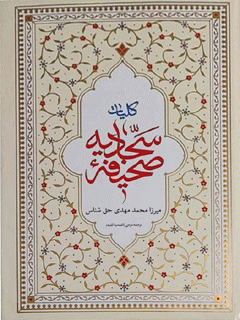 کلیات
صحیفهٔ سجّادیه
میرزا محمد مهدی حق شناس